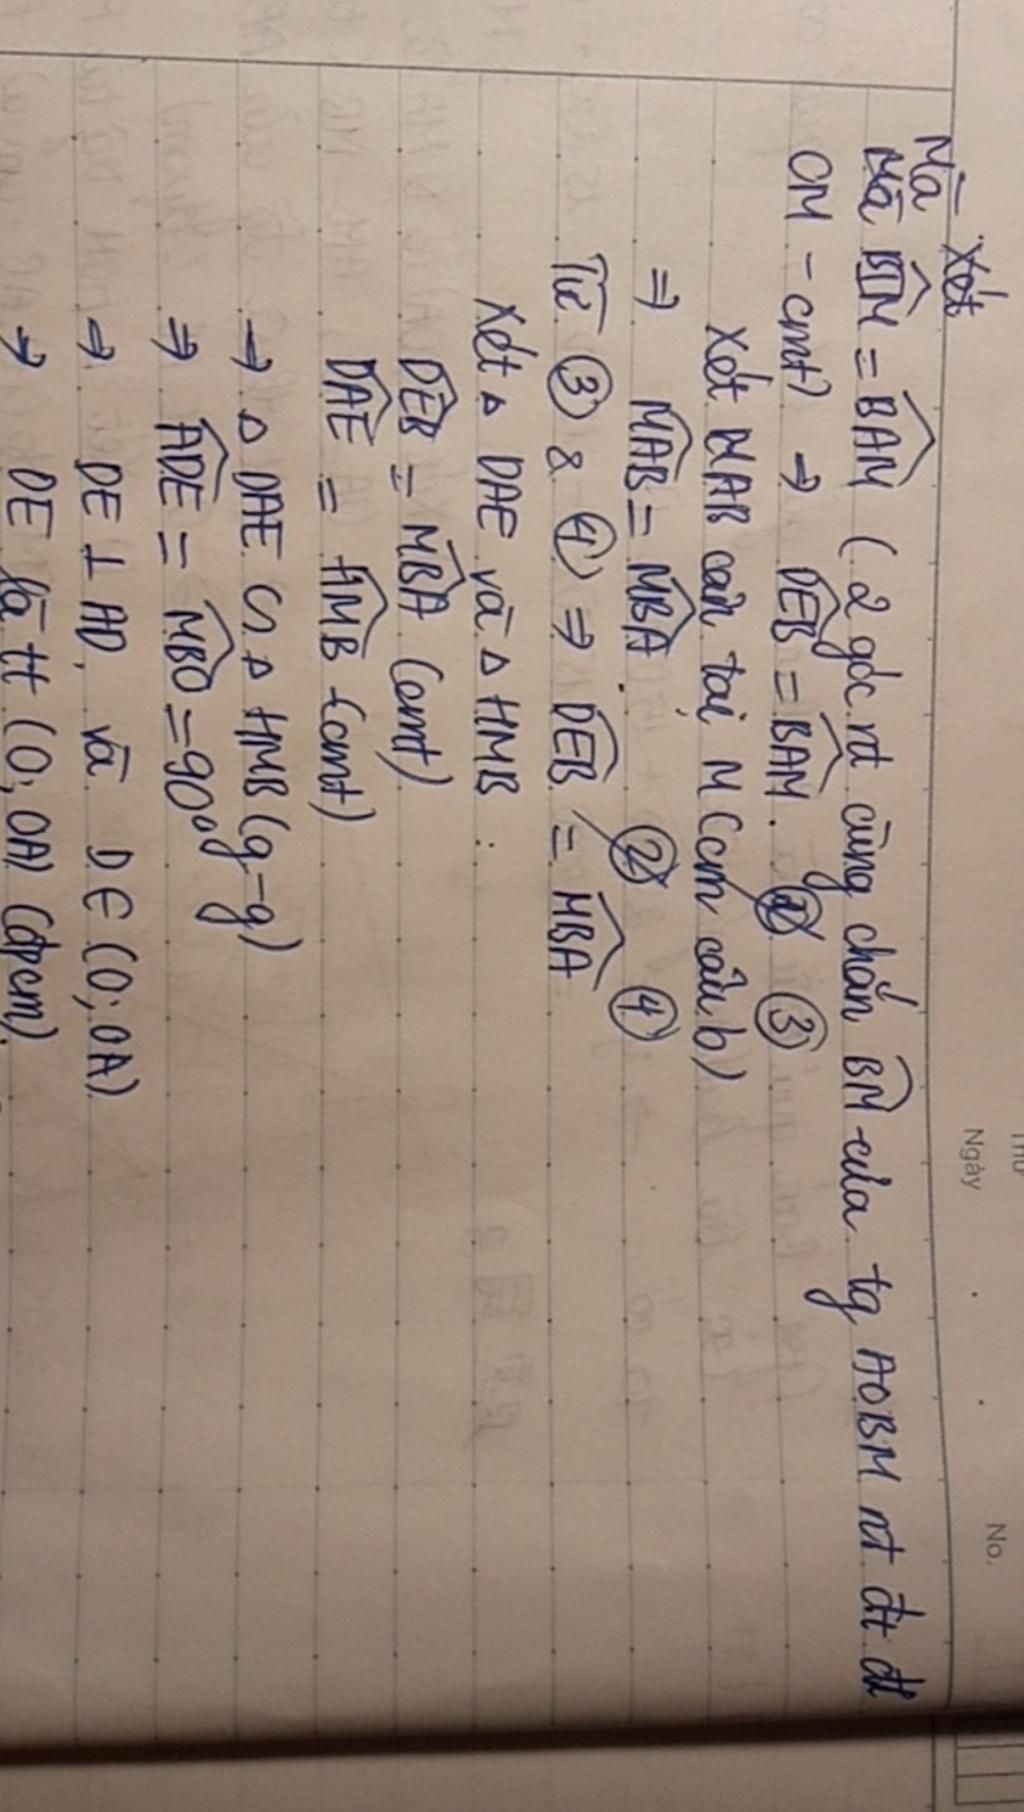 Thứ
Ngày No.
Mà Xét
Mà BIM = BAM (2 góc nt cùng chắn BM của tg AOBM nt đt đk
OM - cmt) → DEB = BAM. ③
Xét MAB cân tại M (cm câu b)
⇒ MAB = MBA ② ④
Từ ③ & ④ ⇒ DEB = MBA
Xét △ DAE và △ HMB:
DEB = MBA (cmt)
DAE = HMB (cmt)
→ △ DAE ∽ △ HMB (g-g)
⇒ ADE = MBO = 90°
⇒ DE ⊥ AD, và D ∈ (O; OA)
→ DE là tt (O; OA) (đpcm).